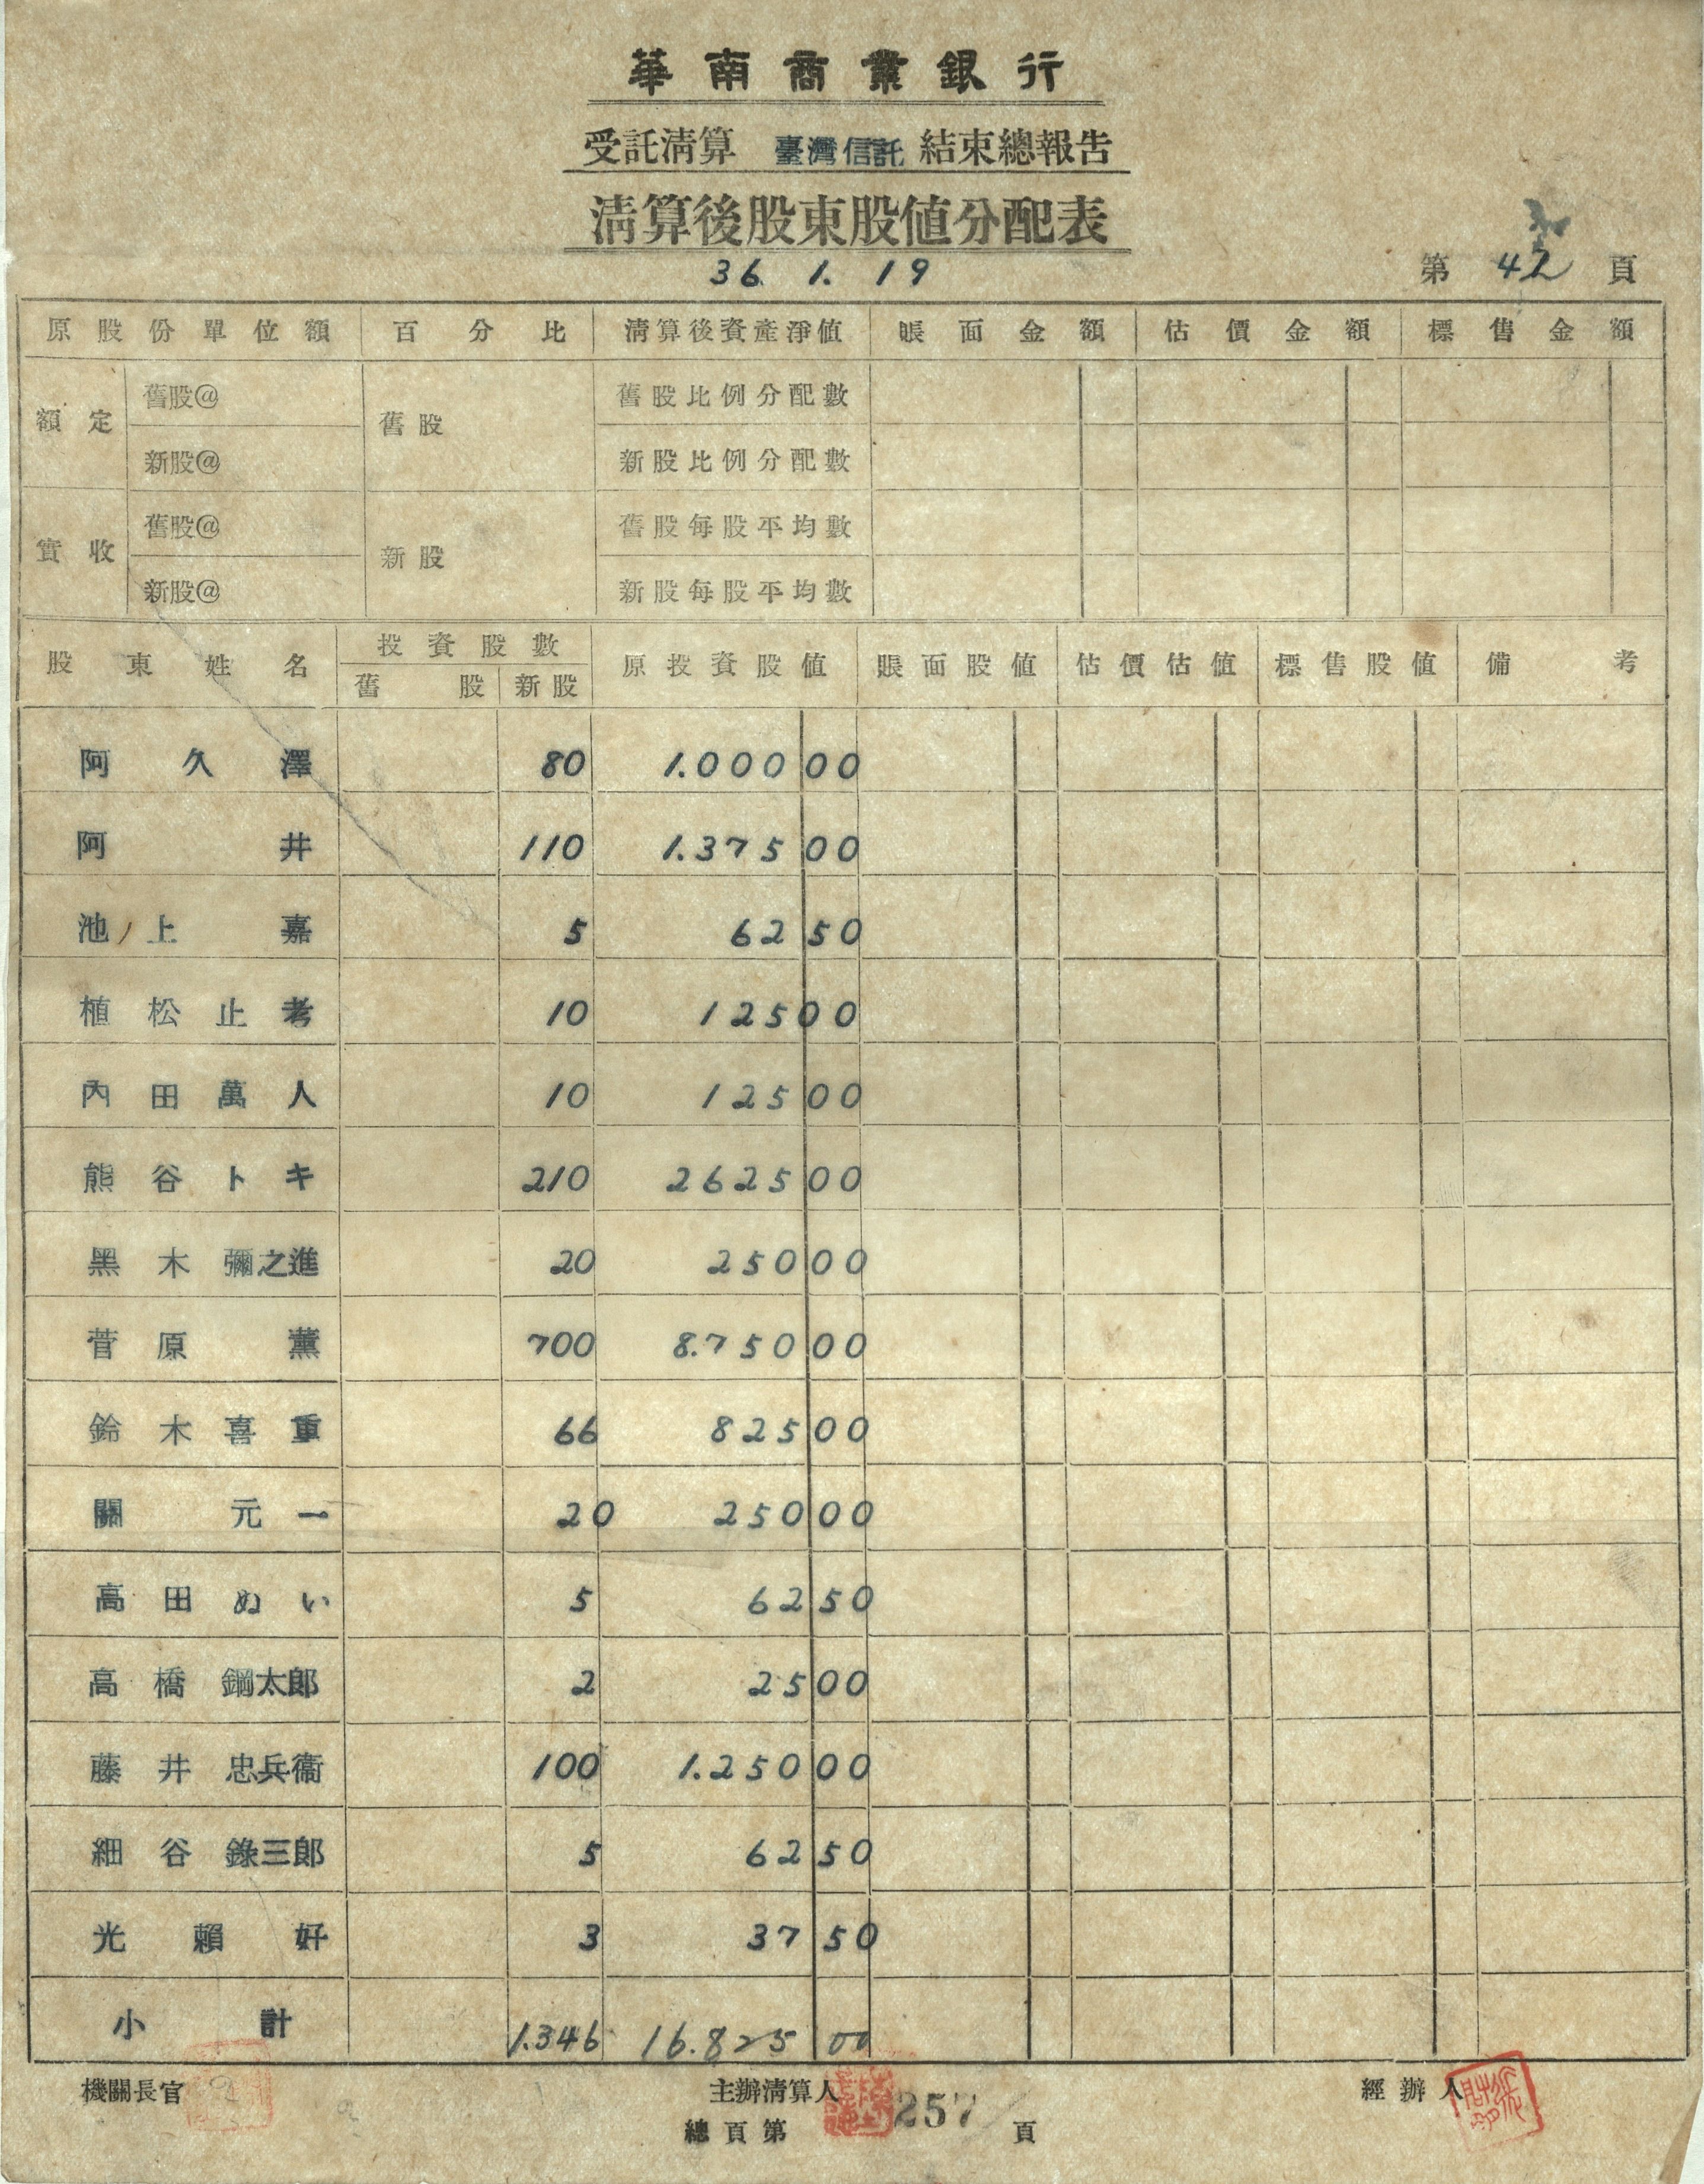 華南商業銀行
受託清算 臺灣信託 結束總報告
清算後股東股值分配表
36. 1. 19
第 42 頁
原股份單位額 百分比 清算後資產淨值 賬面金額 估價金額 標售金額
額定 舊股@ 舊股 舊股比例分配數
新股@ 新股比例分配數
實收 舊股@ 新股 舊股每股平均數
新股@ 新股每股平均數
股東姓名 投資股數 原投資股值 賬面股值 估價估值 標售股值 備考
舊股 新股
阿久澤 80 1.000 00
阿井 110 1.375 00
池ノ上嘉 5 62 50
植松止考 10 125 00
內田萬人 10 125 00
熊谷トキ 210 2625 00
黑木彌之進 20 250 00
菅原薰 700 8.750 00
鈴木喜重 66 825 00
關元一 20 250 00
高田ぬい 5 62 50
高橋鋼太郎 2 25 00
藤井忠兵衞 100 1.250 00
細谷錄三郎 5 62 50
光賴好 3 37 50
小計 1.346 16.825 00
機關長官 主辦清算人 經辦人
總頁第 257 頁